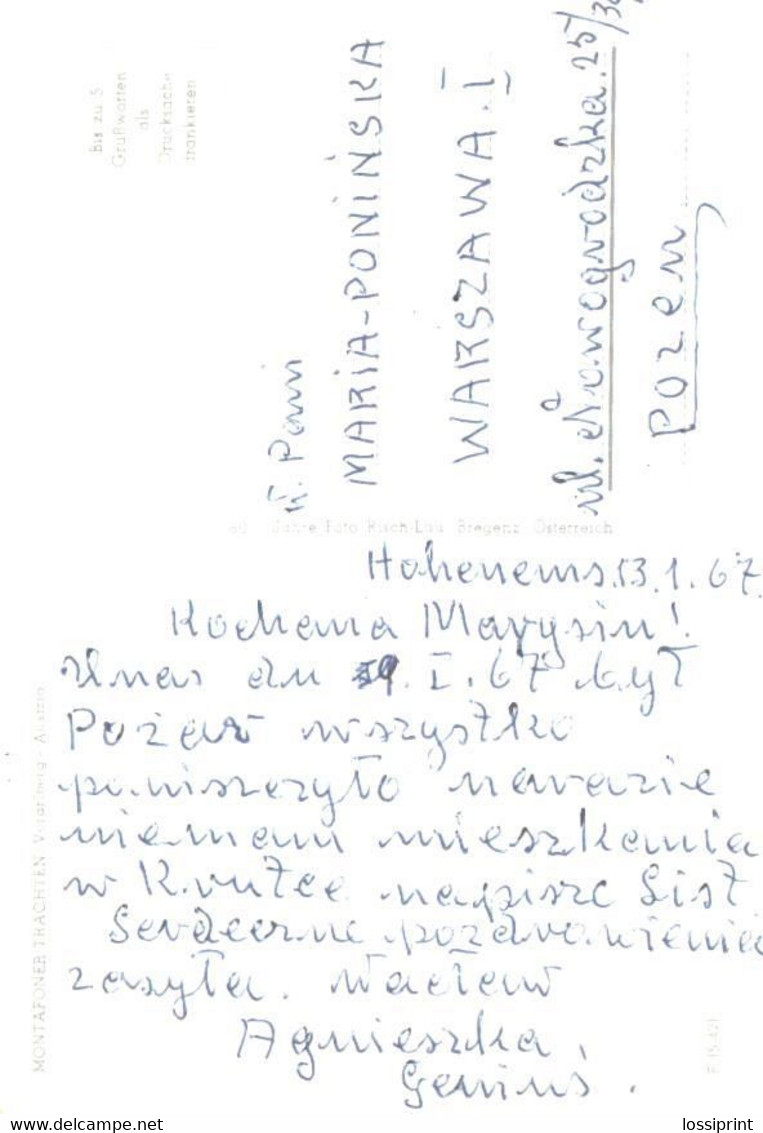 Bis zu 5
Grußworten
als
Drucksache
frankieren
W. Pani
MARIA-PONIŃSKA
WARSZAWA. I
ul. Nowogrodzka. 25/
Polen
Jahre Foto Risch-Lau Bregenz Österreich
Hohenems.13.1.67.
Kochana Marysiu!
Unas dn I.67 był
Pożar wszystko
poniszczyło narazie
niemam mieszkania
w Krutce napisze List
Serdeczne pozdrowienia
zasyła. Wacław
Agnieszka,
Genius.
MONTAFONER TRACHTEN Vorarlberg - Austria
www.delcampe.net
lossiprint